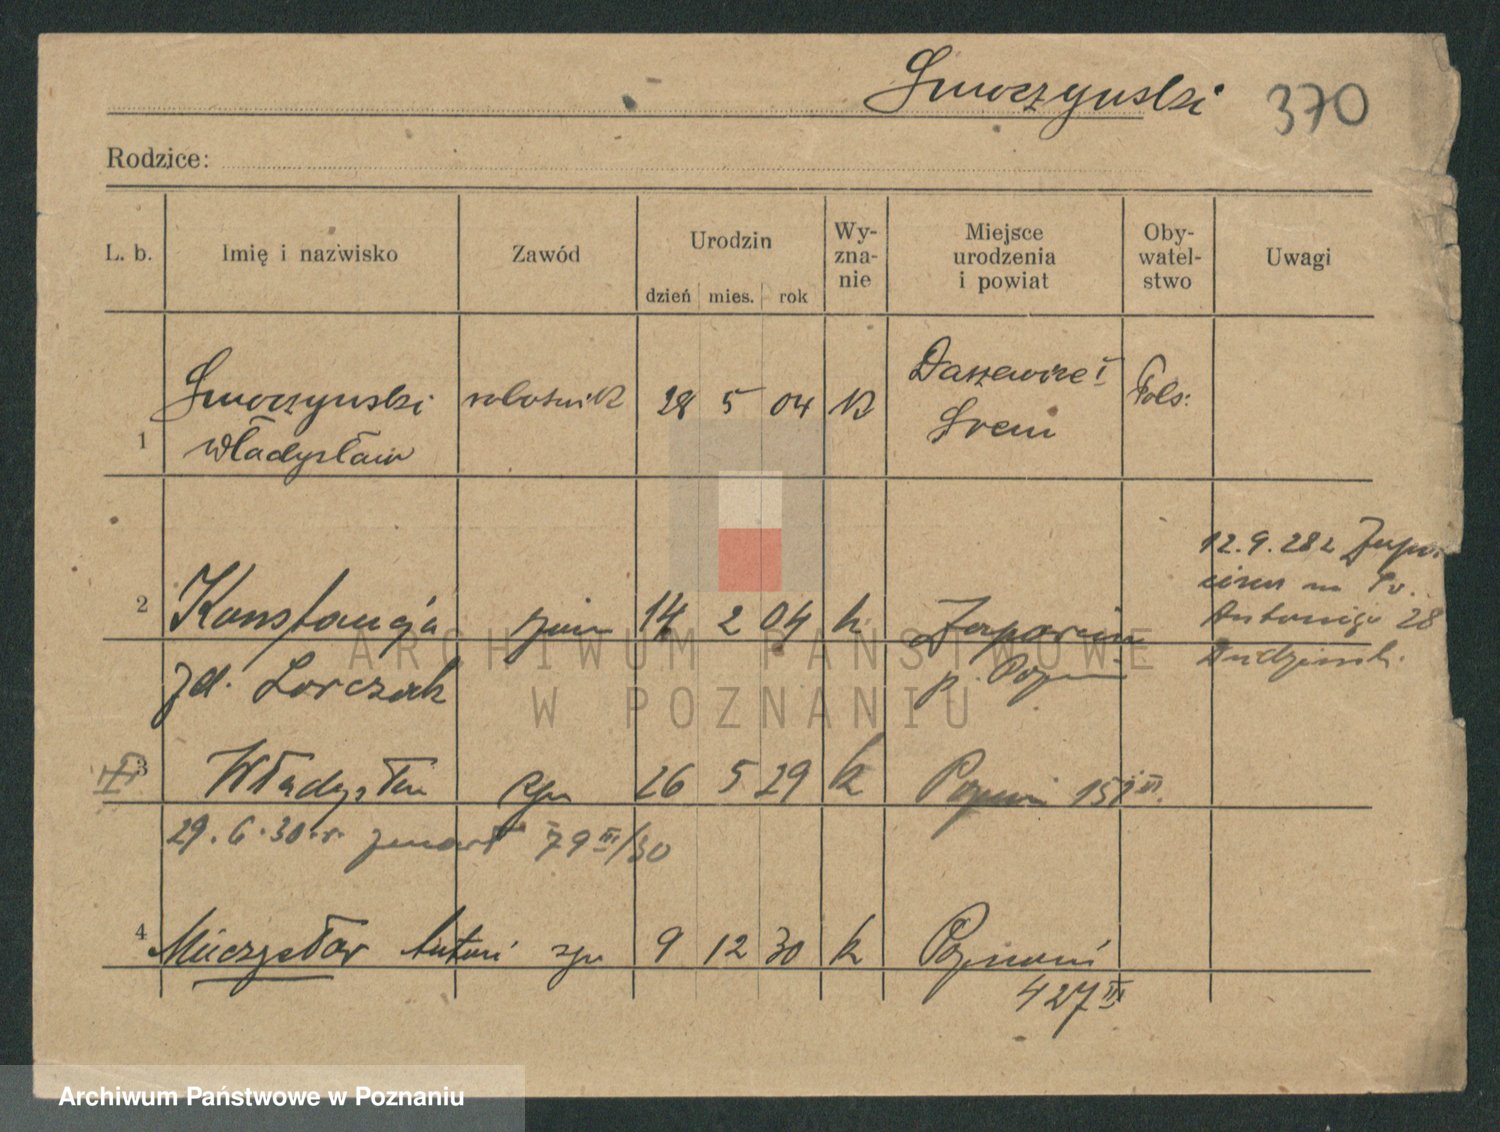 Smoczyński 370
Rodzice:
L. b. Imię i nazwisko Zawód Urodzin dzień mies. rok Wy-zna-nie Miejsce urodzenia i powiat Oby-watel-stwo Uwagi
1 Smoczyński Władysław robotnik 28 5 04 K Daszewice Śrem Pols:
2 Konstancja żona 14 2 04 k.
zd. Lorczak p. Poznań
12.9.28
Antoniego 28
3 Władysław syn 26 5 29 k Poznań
29.6.30.r. zmarł 79 III/30
4 Mieczysław Antoni syn 9 12 30 k Poznań
427 III
ARCHIWUM PAŃSTWOWE
W POZNANIU
Archiwum Państwowe w Poznaniu